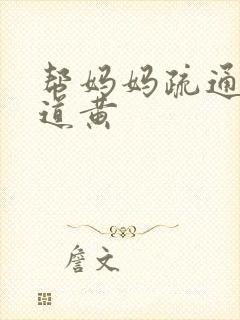 帮妈妈疏通
道黄
詹文